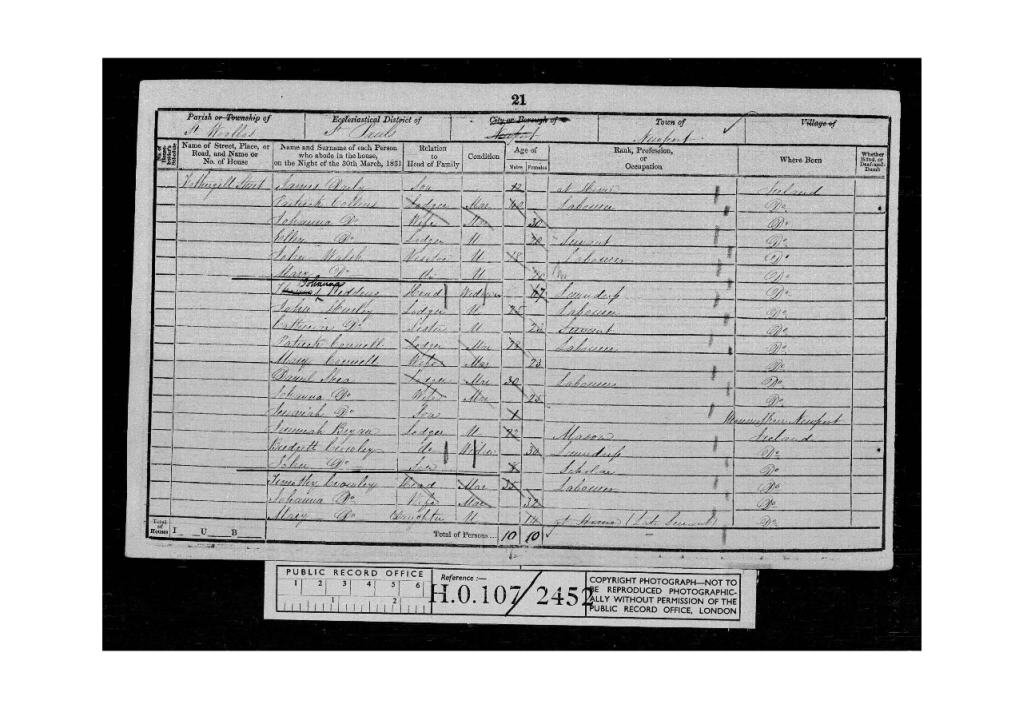 21
Parish or Township of Ecclesiastical District of City or Borough of Town of Village of
St Woollos St Pauls Newport Newport
Name of Street, Place, or Road, and Name or No. of House
Name and Surname of each Person who abode in the house, on the Night of the 30th March, 1851
Relation to Head of Family
Condition
Age of
Males Females
Rank, Profession, or Occupation
Where Born
Whether Blind, or Deaf-and-Dumb
Street James Son 12 at Home Ireland
Patrick Collins Lodger Mar 40 Labourer Do
Johanna Do Wife Mar 30 Do
Ellen Do Lodger U 20 Servant Do
John Walsh Visitor U 18 Labourer Do
Mary Do Do U Do
Johanna Head 47 Do
John Lodger U 25 Labourer Do
Catherine Do Sister U Servant Do
Patrick Connell Lodger Mar 28 Labourer Do
Mary Connell Wife Mar 23 Do
Daniel Shea Lodger Mar 30 Labourer Do
Johanna Do Wife Mar 25 Do
Jeremiah Do Son Newport
Jeremiah Lodger U 22 Mason Ireland
Bridgett Crowley do 30 Do
John Do Son Scholar Do
Timothy Crowley Head Mar 35 Labourer Do
Johanna Do Wife Mar 32 Do
Mary Do Daughter U 14 at Home (Late Servant) Do
Total of Houses I U B Total of Persons 10 10
PUBLIC RECORD OFFICE
1 2 3 4 5 6
1 2
Reference :—
H.O.107/2452
COPYRIGHT PHOTOGRAPH—NOT TO
BE REPRODUCED PHOTOGRAPHIC-
ALLY WITHOUT PERMISSION OF THE
PUBLIC RECORD OFFICE, LONDON